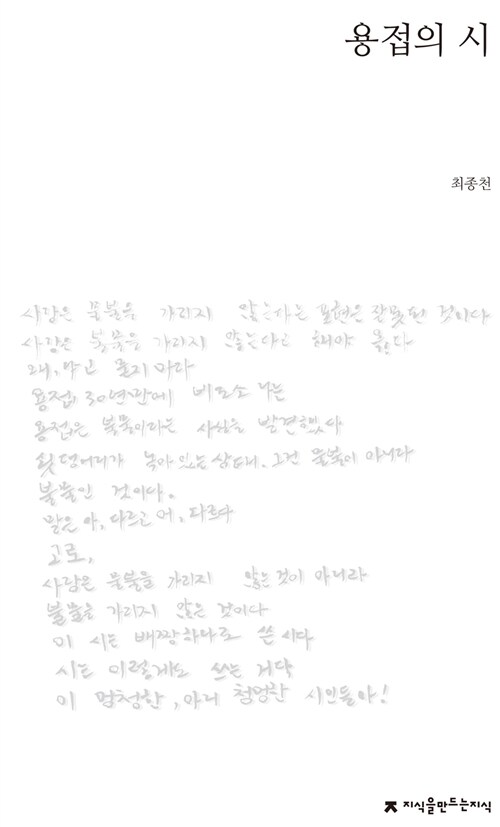 용접의 시
최종천
사람은 물불을 가리지 않는다는 표현은 잘못된 것이다
사람은 불물을 가리지 않는다고 해야 옳다
왜, 냐고 묻지 마라
용접, 30년만에 비로소 나는
용접은 불물이라는 사실을 발견했다
쇳덩어리가 녹아 있는 상태. 그건 물불이 아니다
불물인 것이다.
말은 아, 다르고 어, 다르다
고로,
사람은 물불을 가리지 않는 것이 아니라
불물을 가리지 않은 것이다
이 시는 배짱 하나로 쓴 시다
시는 이렇게도 쓰는 거다
이 멍청한, 아니 청멍한 시인들아!
지식을만드는지식